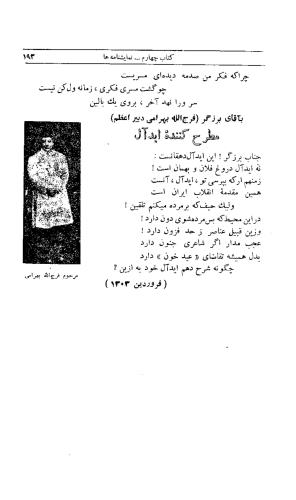 کتاب چهارم ــ نمایشنامه ها ۱۹۳
چراکه فکر من صدمه دیده‌ای مسریست
چوگشت مسری فکری ، زمانه ول‌کن نیست
سر و را نهد آخر ، بروی یك بالین
بآقای برزگر (فرج‌الله بهرامی دبیر اعظم)
مطرح کنندهٔ ایدآل
جناب برزگر ! این ایدآل دهقانست :
نه ایدآل دروغ فلان و بهمان است !
زمنهم ارکه بپرسی تو، ایدآل ، آنست
همین مقدمهٔ انقلاب ایران است
ولیك حیف‌که برمرده میکنم تلقین !
دراین محیط‌که بس‌مرده‌شوی دون دارد !
وزین قبیل عناصر ز حد فزون دارد !
عجب مدار اگر شاعری جنون دارد
بدل همیشه تقاضای « عید خون » دارد
چگونه شرح دهم ایدآل خود به ازین ؟
( فروردین ۱۳۰۳ )
مرحوم فرج‌الله بهرامی